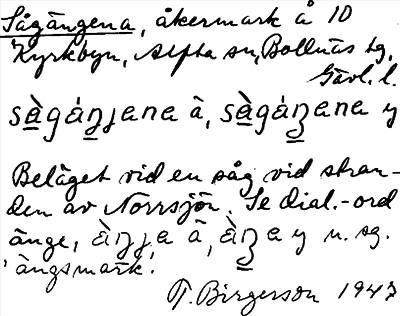 Sågängena, åkermark å 10
Kyrkbyn, Alfta sn, Bollnäs tg,
Gävl. l.
sàgáŋjena ā, sàgáŋena y
Beläget vid en såg vid stran-
den av Norrsjön. Se dial.-ord
änge, àŋjea ā, àŋea y n. sg.
'ängsmark'.
T. Birgerson 1947